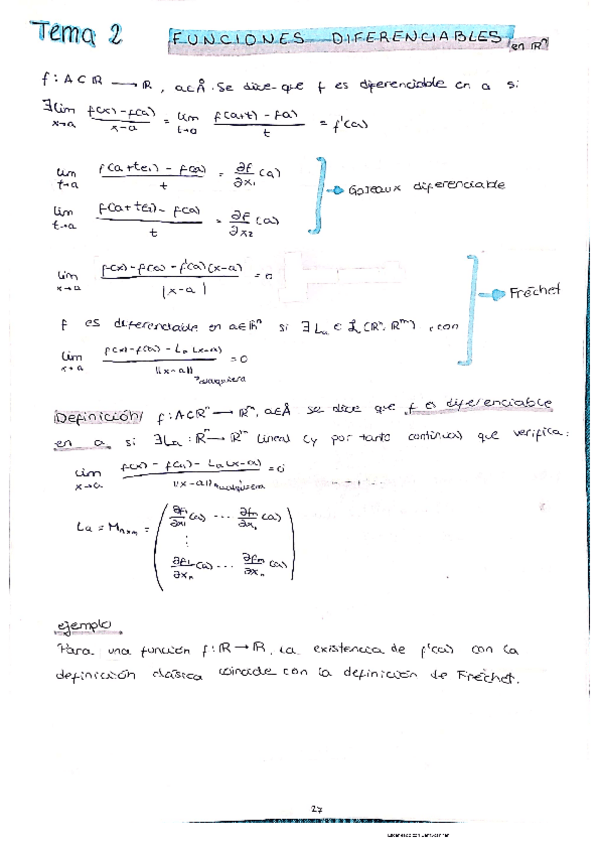 Tema 2 FUNCIONES DIFERENCIABLES en ℝⁿ
f: A⊂ℝ → ℝ, a∈Å. Se dice que f es diferenciable en a si
∃ lim_{x→a} (f(x)-f(a))/(x-a) = lim_{t→0} (f(a+t)-f(a))/t = f'(a)
lim_{t→0} (f(a+te₁)-f(a))/t = ∂f/∂x₁ (a)
→ Gateaux diferenciable
lim_{t→0} (f(a+te₂)-f(a))/t = ∂f/∂x₂ (a)
lim_{x→a} (f(x)-f(a)-f'(a)(x-a))/|x-a| = 0
→ Fréchet
f es diferenciable en a∈ℝⁿ si ∃ Lₐ ∈ ℒ(ℝⁿ, ℝᵐ), con
lim_{x→a} (f(x)-f(a)-Lₐ(x-a))/||x-a|| = 0
cualquiera
Definición/ f: A⊂ℝⁿ → ℝᵐ, a∈Å se dice que f es diferenciable
en a si ∃Lₐ: ℝⁿ → ℝᵐ lineal (y por tanto continua) que verifica:
lim_{x→a} (f(x)-f(a)-Lₐ(x-a))/||x-a|| cualquiera = 0
Lₐ = Mₙₓₘ = ( ∂f₁/∂x₁ (a) ... ∂fₘ/∂x₁ (a)
⋮
∂f₁/∂xₙ (a) ... ∂fₘ/∂xₙ (a) )
ejemplo
Para una función f: ℝ → ℝ, la existencia de f'(a) con la
definición clásica coincide con la definición de Fréchet.
27
Escaneado con CamScanner